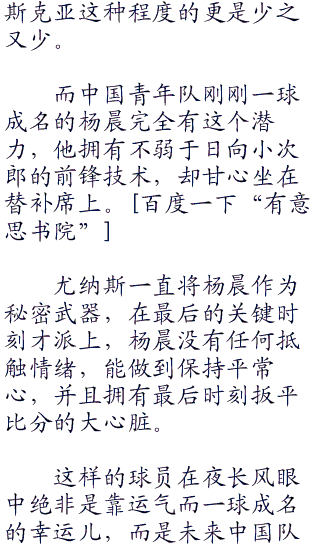 斯克亚这种程度的更是少之
又少。
而中国青年队刚刚一球
成名的杨晨完全有这个潜
力，他拥有不弱于日向小次
郎的前锋技术，却甘心坐在
替补席上。[百度一下“有意
思书院”]
尤纳斯一直将杨晨作为
秘密武器，在最后的关键时
刻才派上，杨晨没有任何抵
触情绪，能做到保持平常
心，并且拥有最后时刻扳平
比分的大心脏。
这样的球员在夜长风眼
中绝非是靠运气而一球成名
的幸运儿，而是未来中国队